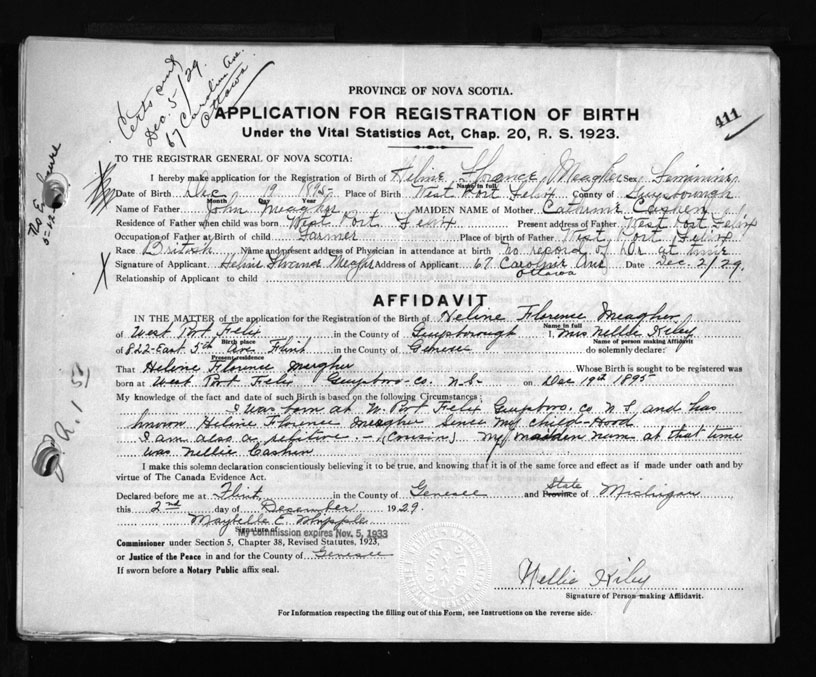 Certs and
Dec. 5/29.
67 Caroline Ave.
Ottawa
PROVINCE OF NOVA SCOTIA.
APPLICATION FOR REGISTRATION OF BIRTH
411
Under the Vital Statistics Act, Chap. 20, R. S. 1923.
TO THE REGISTRAR GENERAL OF NOVA SCOTIA:
I hereby make application for the Registration of Birth of Heline Florance Meagher Sex Feminine
Name in full
Date of Birth Dec 19 1895 Place of Birth West Port Felix County of Guysborough
Month Day Year
Name of Father John Meagher MAIDEN NAME of Mother Catherine Cashen
Residence of Father when child was born West Port Felix Present address of Father West Port Felix
Occupation of Father at Birth of child Farmer Place of birth of Father West Port Felix
Race British Name and present address of Physician in attendance at birth no record of Dr at time
Signature of Applicant Heline Florance Meagher Address of Applicant 67 Caroline Ave Ottawa Date Dec. 2/29.
Relationship of Applicant to child
AFFIDAVIT
IN THE MATTER of the application for the Registration of the Birth of Heline Florence Meagher
Name in full
of West Port Felix in the County of Guysborough I, Mrs Nellie Kiley
Birth place Name of person making Affidavit
of 822-East 5th Ave Flint in the County of Genesee do solemnly declare:
Present residence
That Helene Florence Meagher Whose Birth is sought to be registered was
born at West Port Felix Guysboro-co. N.S. on Dec 19th 1895
My knowledge of the fact and date of such Birth is based on the following Circumstances:
I was born at W. Port Felix Guysboro. co N.S, and has
known Heline Florence Meagher since my child-Hood
I am also a relitive.-(Cousin) My maidden name at that time
was Nellie Cashen
I make this solemn declaration conscientiously believing it to be true, and knowing that it is of the same force and effect as if made under oath and by
virtue of The Canada Evidence Act.
Declared before me at Flint, in the County of Genesee and State Province of Michigan
this 2nd day of December 1929.
Maybelle E. Whipple
Signature of
My commission expires Nov. 5, 1933
Commissioner under Section 5, Chapter 38, Revised Statutes, 1923,
or Justice of the Peace in and for the County of Genesee
If sworn before a Notary Public affix seal.
Nellie Kiley
Signature of Person making Affidavit.
For Information respecting the filling out of this Form, see Instructions on the reverse side.